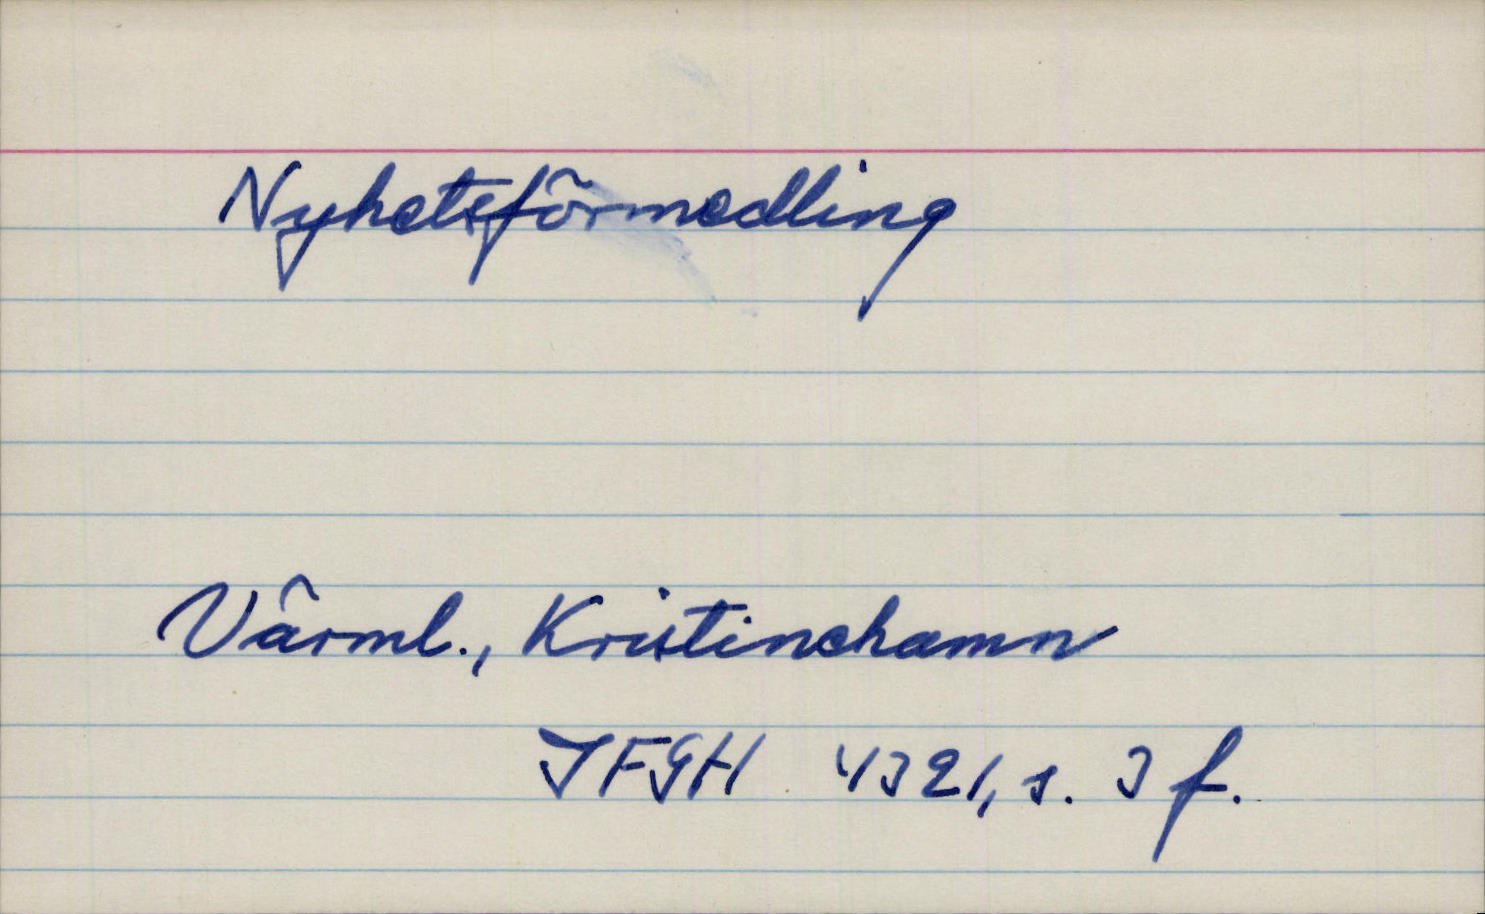 Nyhetsförmedling
Värml., Kristinehamn
IFGH 4321, s. 3 f.